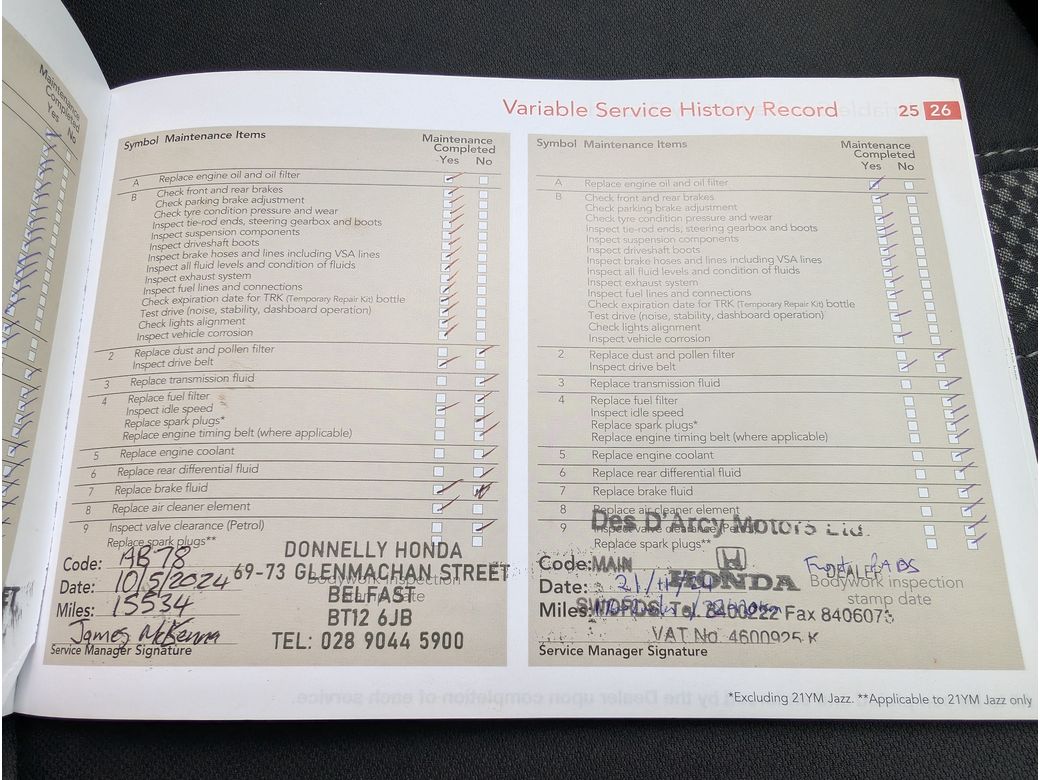 Maintenance
Completed
Yes No
Variable Service History Record 25 26
Symbol Maintenance Items
Maintenance
Completed
Yes No
A Replace engine oil and oil filter
B Check front and rear brakes
Check parking brake adjustment
Check tyre condition pressure and wear
Inspect tie-rod ends, steering gearbox and boots
Inspect suspension components
Inspect driveshaft boots
Inspect brake hoses and lines including VSA lines
Inspect all fluid levels and condition of fluids
Inspect exhaust system
Inspect fuel lines and connections
Check expiration date for TRK (Temporary Repair Kit) bottle
Test drive (noise, stability, dashboard operation)
Check lights alignment
Inspect vehicle corrosion
2 Replace dust and pollen filter
Inspect drive belt
3 Replace transmission fluid
4 Replace fuel filter
Inspect idle speed
Replace spark plugs*
Replace engine timing belt (where applicable)
5 Replace engine coolant
6 Replace rear differential fluid
7 Replace brake fluid
8 Replace air cleaner element
9 Inspect valve clearance (Petrol)
Replace spark plugs**
Code: AB78
Date: 10/5/2024
Miles: 15534
James McKenna
Service Manager Signature
DONNELLY HONDA
69-73 GLENMACHAN STREET
Bodywork inspection
stamp date
BELFAST
BT12 6JB
TEL: 028 9044 5900
Symbol Maintenance Items
Maintenance
Completed
Yes No
A Replace engine oil and oil filter
B Check front and rear brakes
Check parking brake adjustment
Check tyre condition pressure and wear
Inspect tie-rod ends, steering gearbox and boots
Inspect suspension components
Inspect driveshaft boots
Inspect brake hoses and lines including VSA lines
Inspect all fluid levels and condition of fluids
Inspect exhaust system
Inspect fuel lines and connections
Check expiration date for TRK (Temporary Repair Kit) bottle
Test drive (noise, stability, dashboard operation)
Check lights alignment
Inspect vehicle corrosion
2 Replace dust and pollen filter
Inspect drive belt
3 Replace transmission fluid
4 Replace fuel filter
Inspect idle speed
Replace spark plugs*
Replace engine timing belt (where applicable)
5 Replace engine coolant
6 Replace rear differential fluid
7 Replace brake fluid
8 Replace air cleaner element
Des D'Arcy Motors Ltd.
9 Inspect valve clearance (Petrol)
Replace spark plugs**
Code: MAIN DEALER
Date: 21/11/24 HONDA
Bodywork inspection
stamp date
Miles:
SWORDS. Tel. 8400222 Fax 8406073
VAT No. 4600925 K
Service Manager Signature
*Excluding 21YM Jazz. **Applicable to 21YM Jazz only